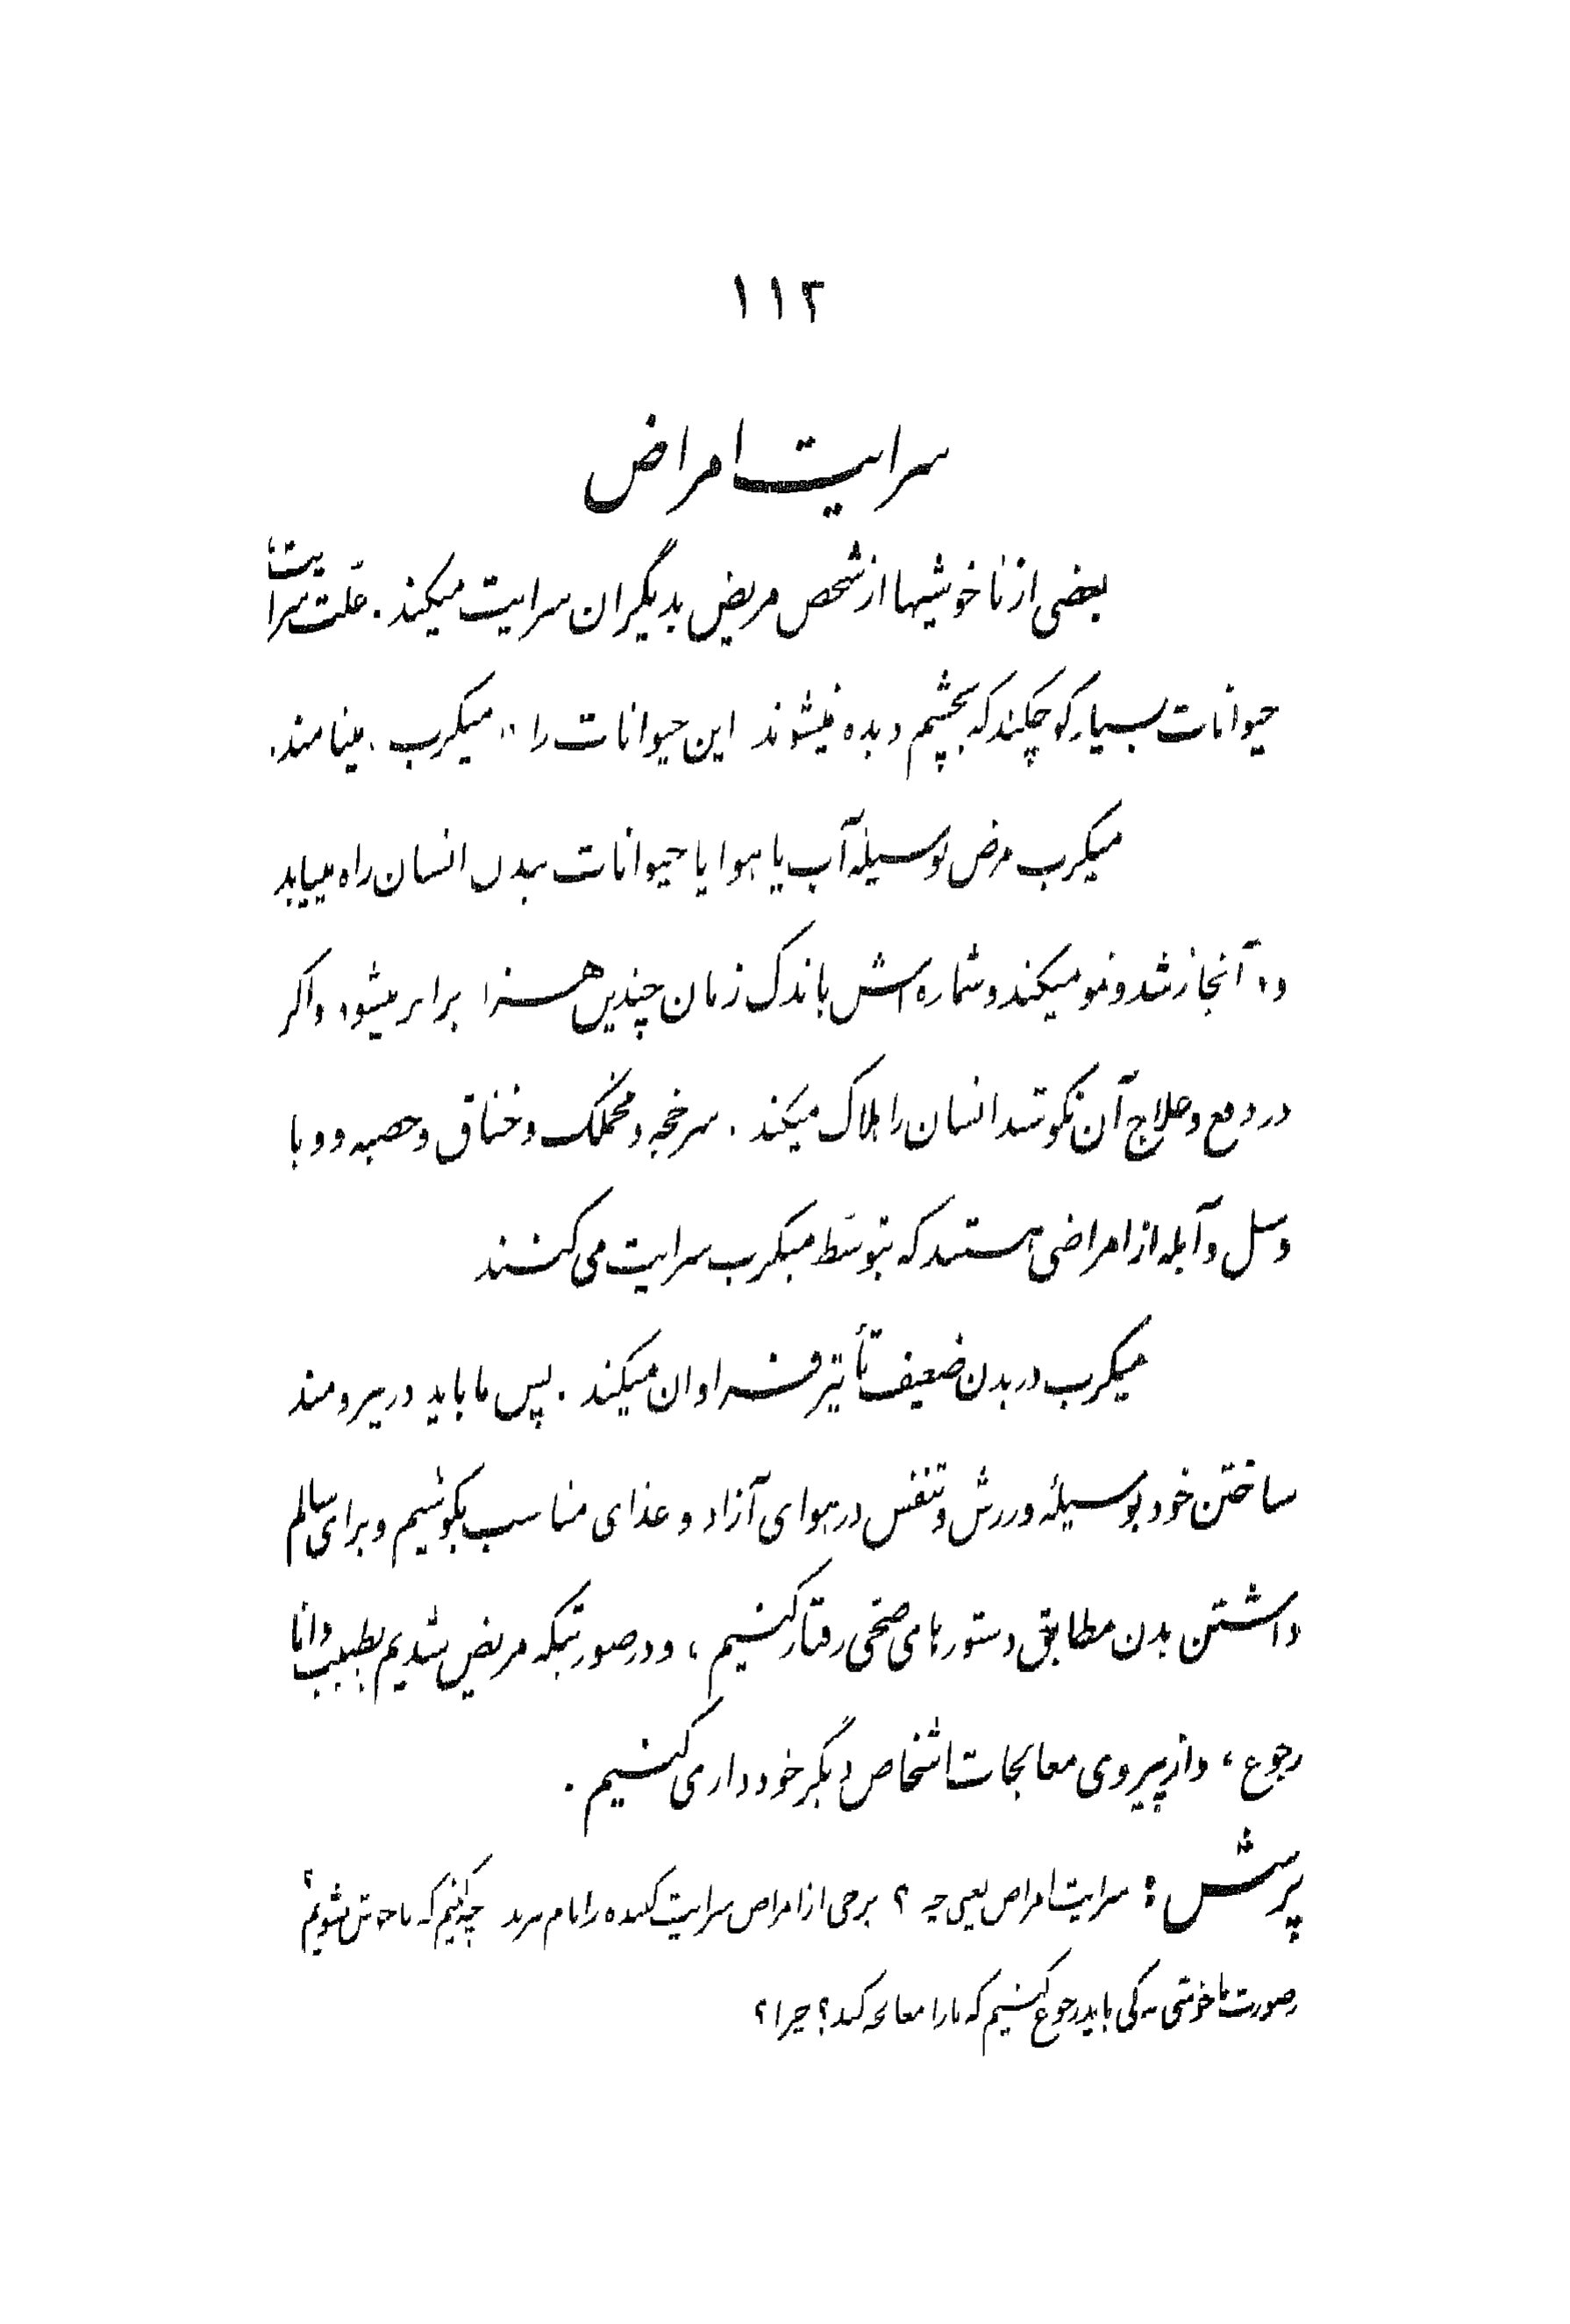 ۱۱۲
سرایت امراض
بعضی از ناخوشیها از شخص مریض بدیگران سرایت میکند. علّت سرایت،
حیوانات بسیار کوچکند که بچشم دیده نمیشوند این حیوانات را «میکرب» مینامند.
میکرب مرض بوسیلهٔ آب یا هوا یا حیوانات ببدن انسان راه مییابد
در آنجا رشد و نمو میکند و شماره‌اش باندک زمان چندین هزار برابر میشود و اگر
در دفع و علاج آن نکوشند انسان را هلاک میکند. سرخجه و مخملک و خناق و حصبه و وبا
و سل و آبله از امراضی هستند که بتوسّط میکرب سرایت می کنند
میکرب در بدن ضعیف تأثیر فراوان میکند. پس ما باید در نیرومند
ساختن خود بوسیلهٔ ورزش و تنفّس در هوای آزاد و غذای مناسب بکوشیم و برای سالم
داشتن بدن مطابق دستورهای صحّی رفتار کنیم، و در صورتیکه مریض شدیم بطبیب دانا
رجوع، و از پیروی معالجات اشخاص دیگر خودداری کنیم.
پرسش: سرایت امراض یعنی چه؟ برخی از امراض سرایت کننده را نام ببرید چه کنیم که ناخوش نشویم؟
در صورت ناخوشی به کی باید رجوع کنیم که ما را معالجه کند؟ چرا؟